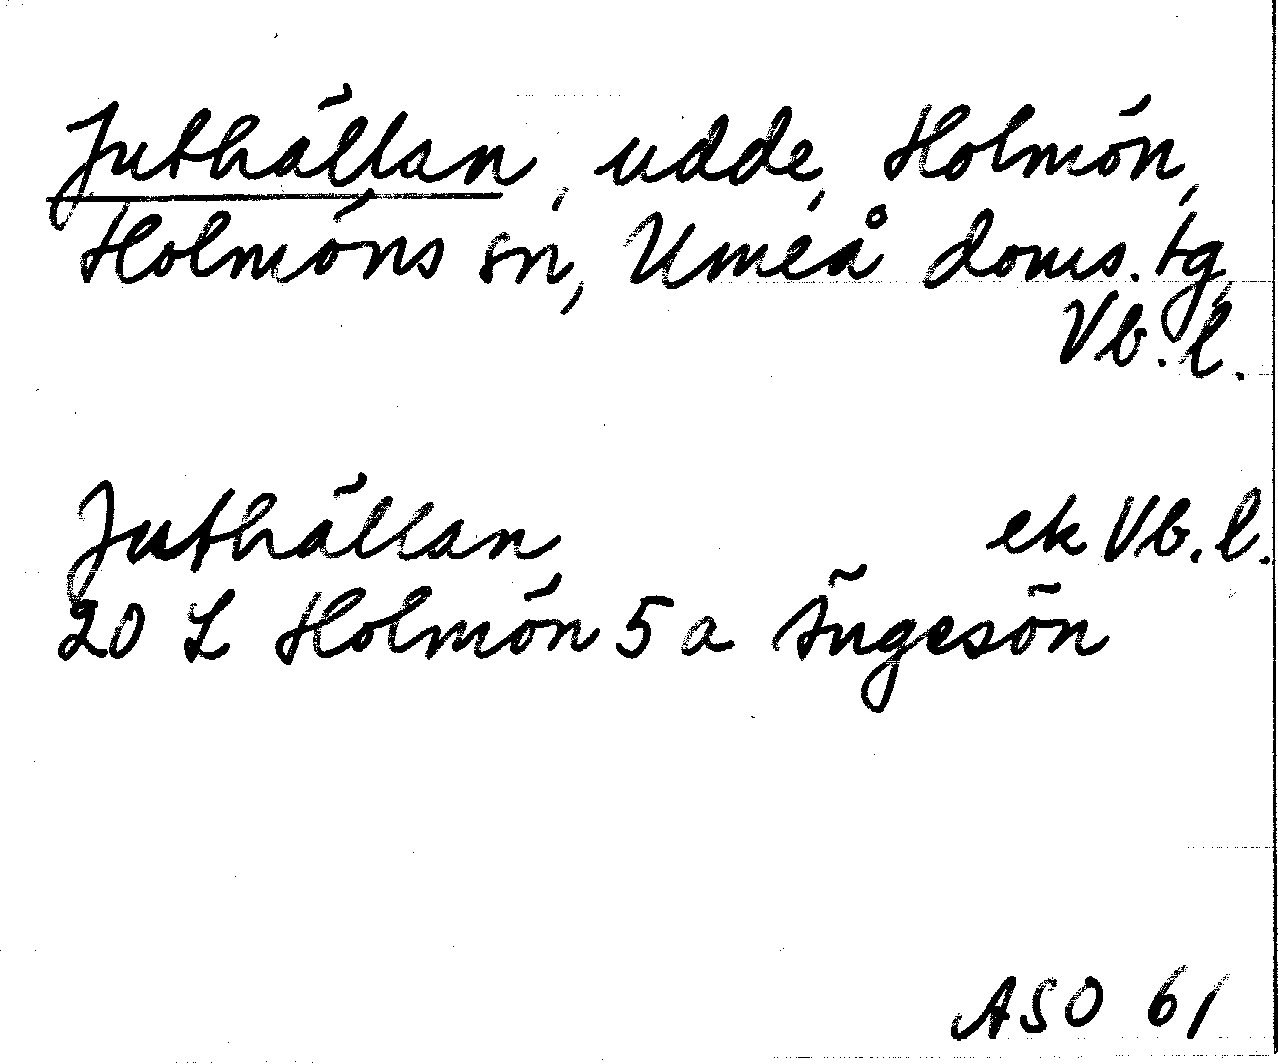 Juthällan, udde, Holmön,
Holmöns sn, Umeå doms. tg,
Vb. l.
Juthällan ek Vb. l.
20 L Holmön 5 a Ängesön
ASO 61